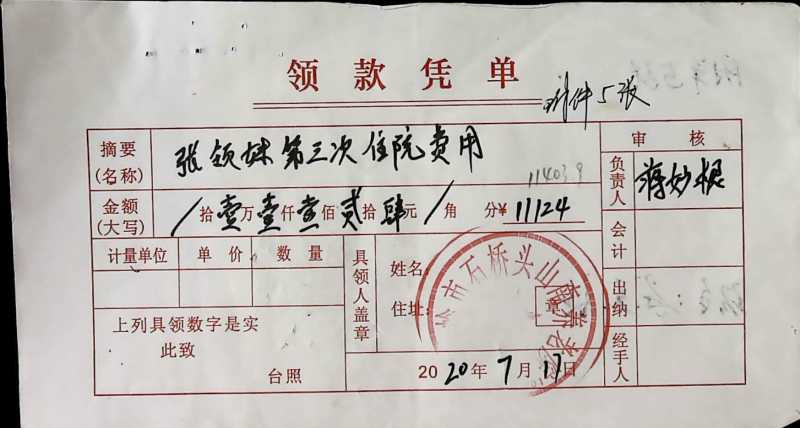 领款凭单
附件5张
摘要(名称) 张领妹第三次住院费用
审核
114039
金额(大写) / 拾壹万壹仟壹佰贰拾肆元 / 角 分¥ 11124
负责人 蒋妙根
计量单位 单价 数量
具领人盖章
姓名:
住址:
章
市石桥头山
会计
出纳
经手人
上列具领数字是实
此致
台照
2020年7月17日